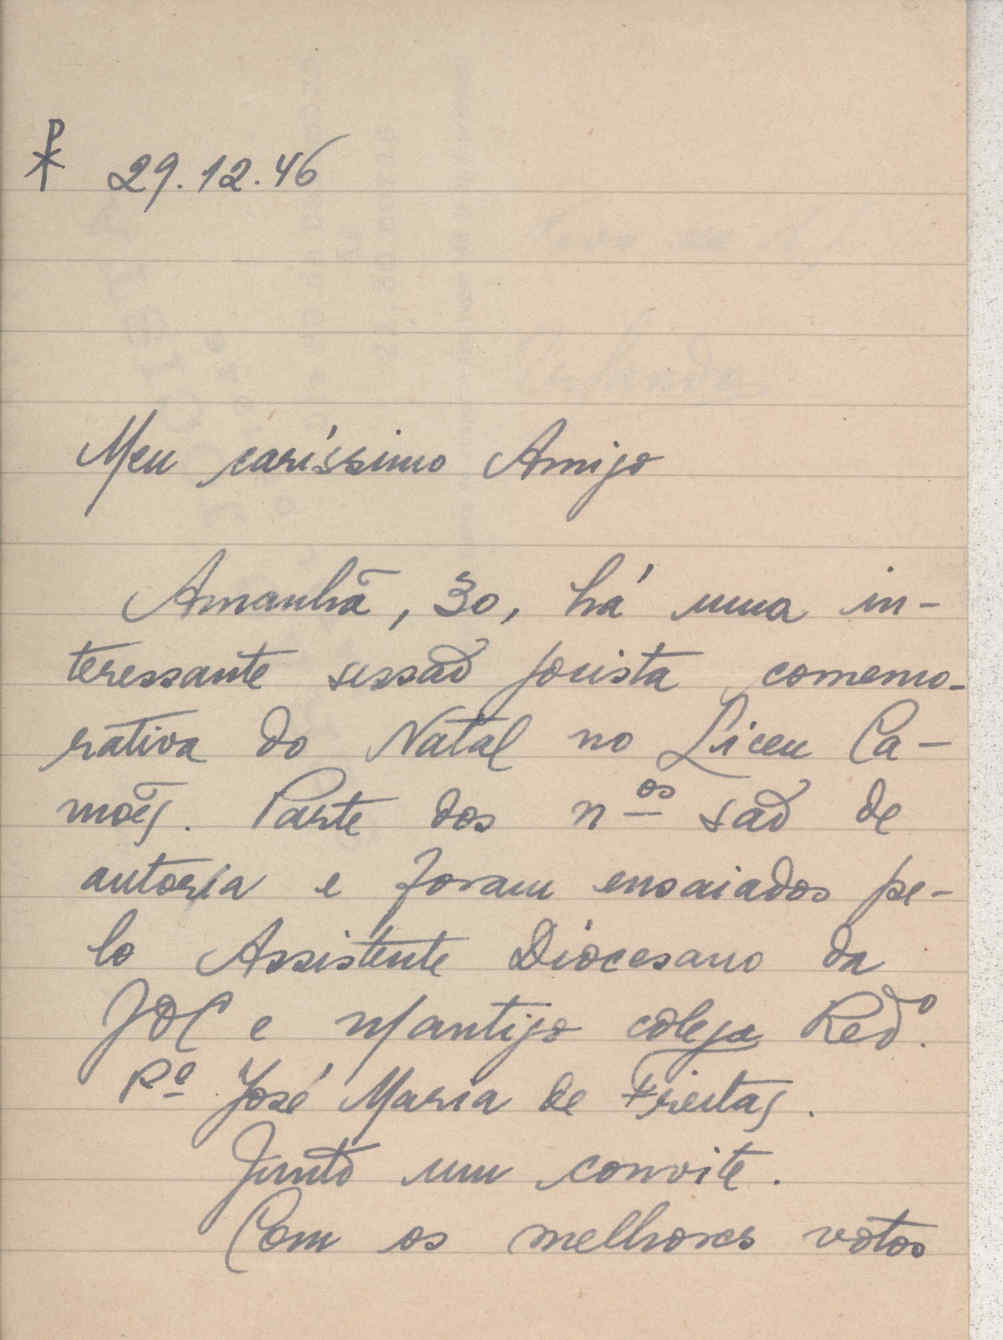 29.12.46
Meu caríssimo Amigo
Amanhã, 30, há uma in-
teressante sessão jocista comemo-
rativa do Natal no Liceu Ca-
mões. Parte dos n.os são de
autoria e foram ensaiados pe-
lo Assistente Diocesano da
JOC e n/antigo colega Revdo.
Pe. José Maria de Freitas.
Junto um convite.
Com os melhores votos